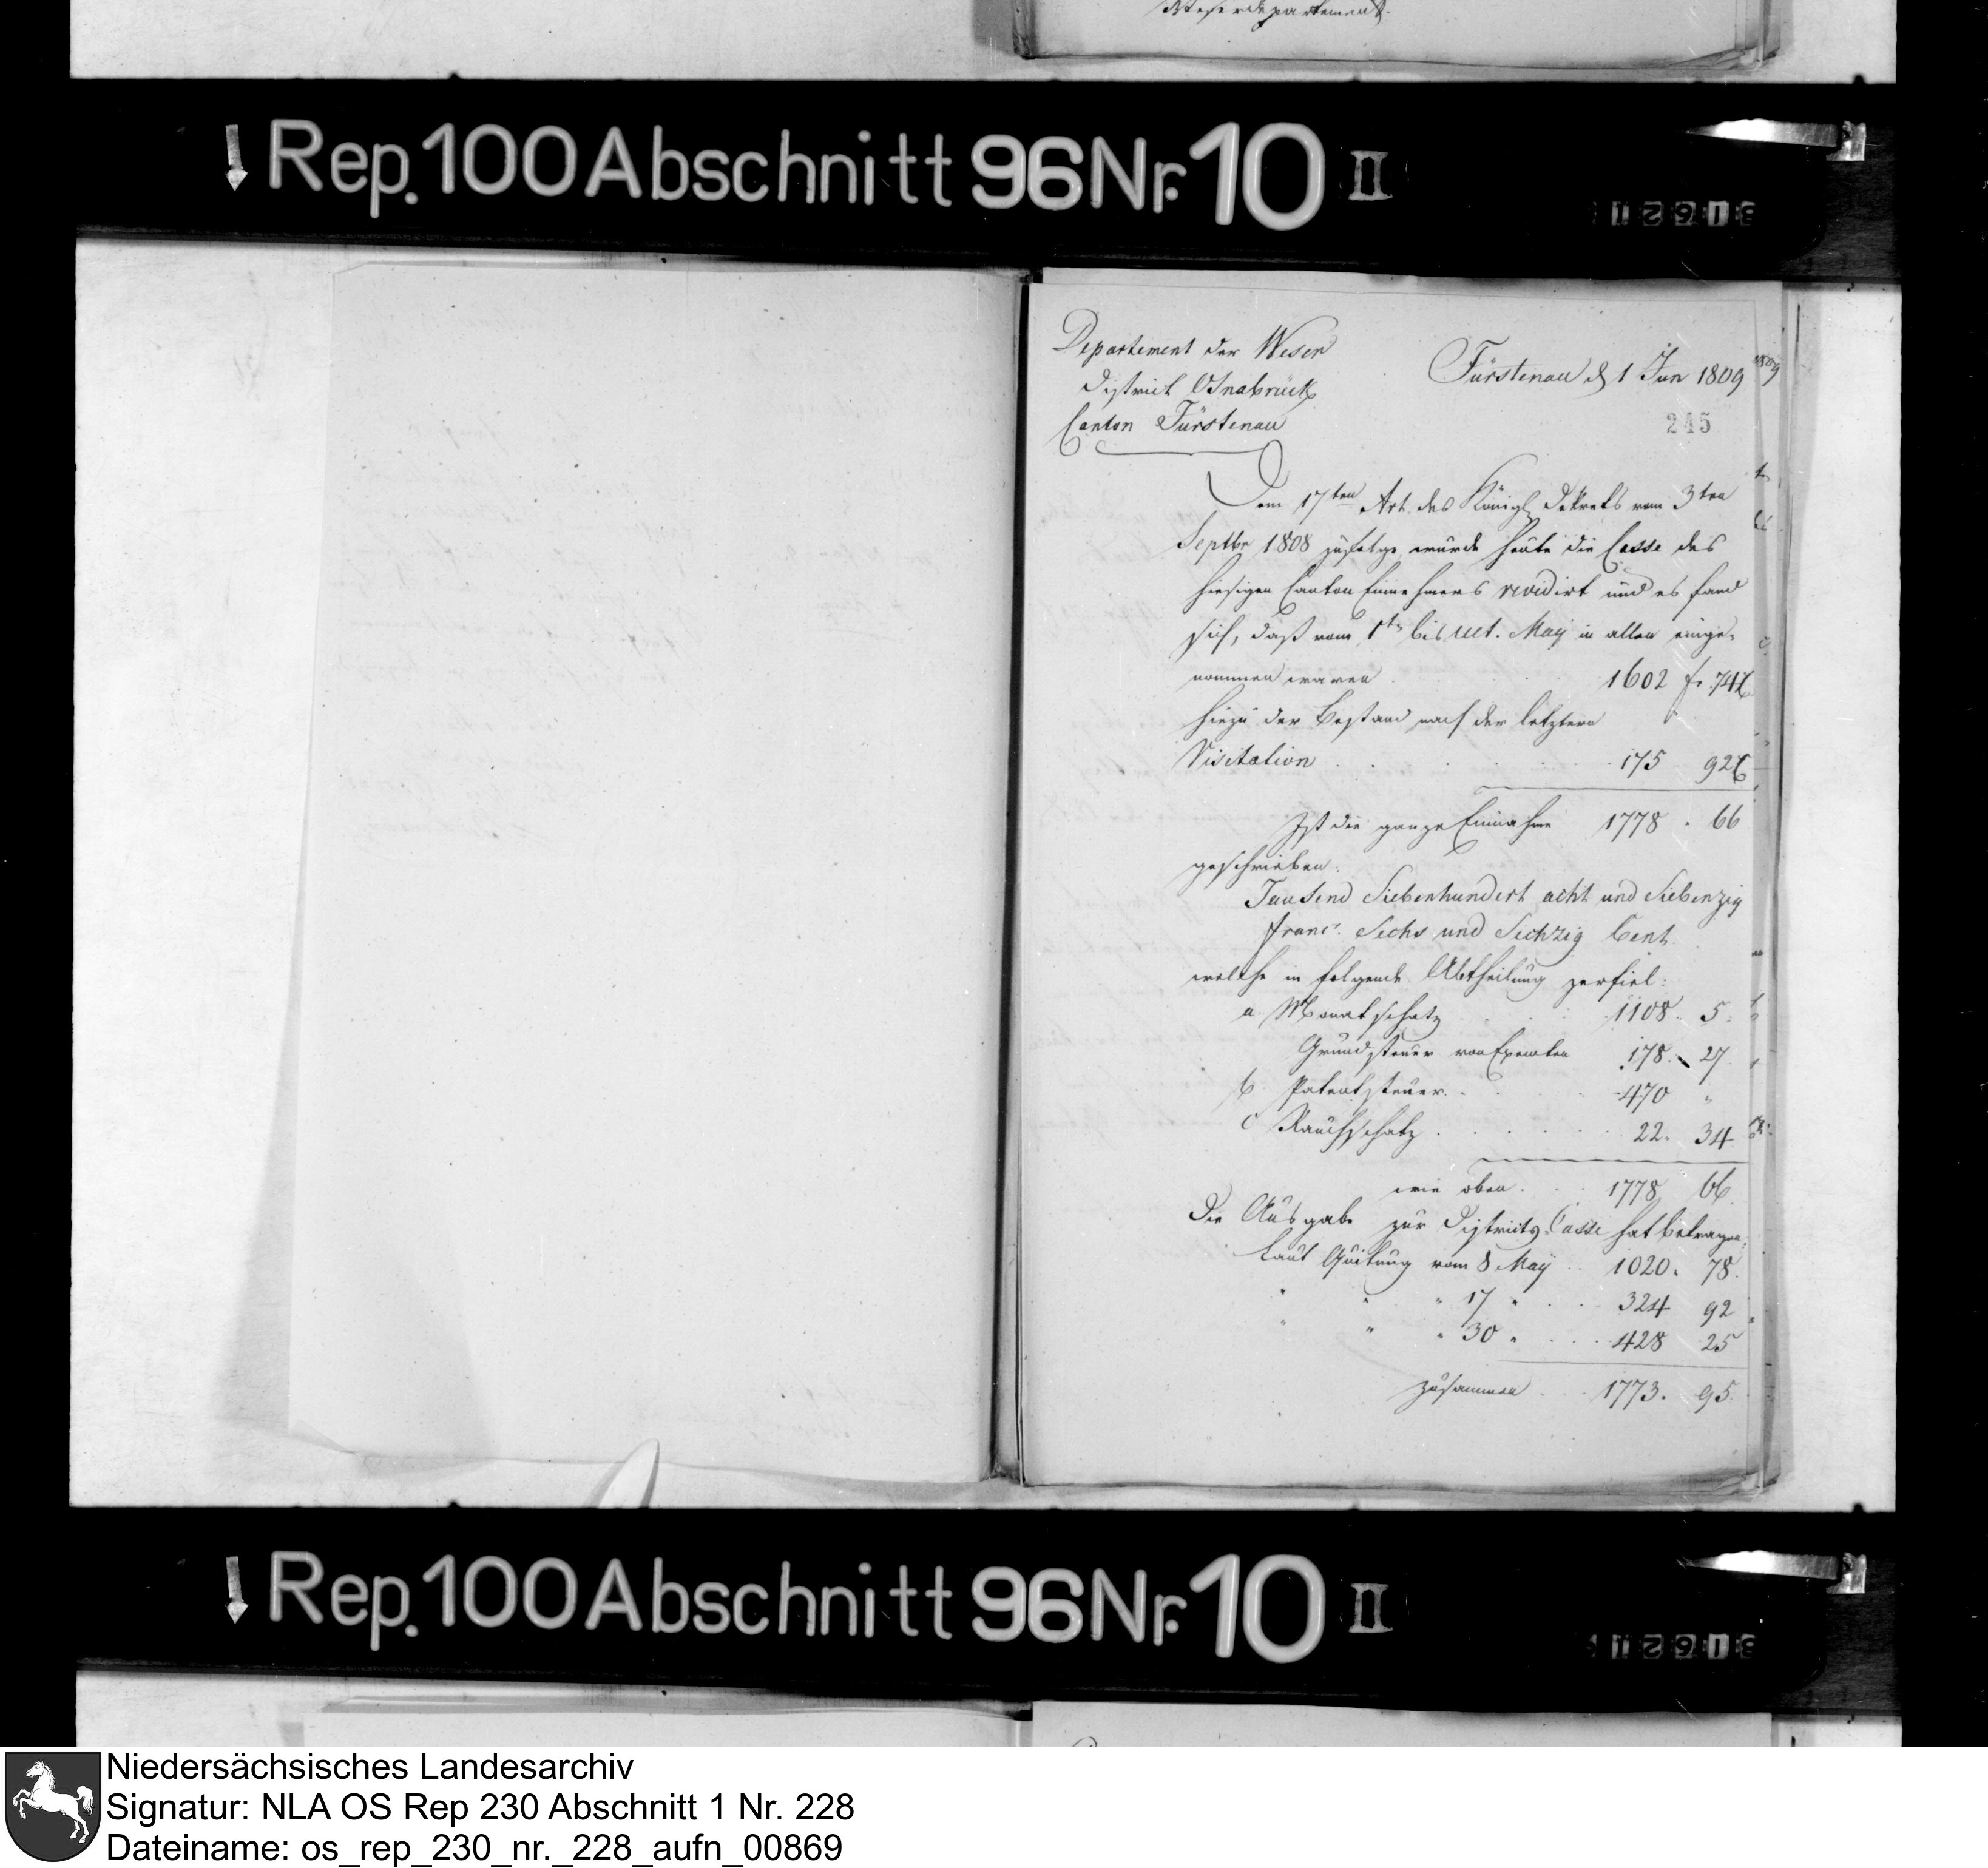 Weserdepartement.
Rep. 100 Abschnitt 96 Nr. 10 II
Departement der Weser
District Osnabrück
Canton Fürstenau
Fürstenau d 1 Jun 1809
245
Dem 17ten Art. des Königl. Dekrets vom 3ten
Septbr 1808 zufolge wurde heute die Casse des
hiesigen Canton Einnehmers revidirt und es fand
sich, daß vom 1ten bis ult. May in allen einge-
nommen waren . 1602 fr. 74 C
hiezu der Bestand nach der letztern
Visitation . . . . . . 175 92 C
Ist die ganze Einnahme 1778 . 66
geschrieben:
Tausend Siebenhundert acht und Siebenzig
franc. Sechs und Sechzig Cent.
welche in folgende Abtheilung zerfiel:
a. Monatschatz . . . 1108. 5.
Grundsteuer von Exemten 178. 27
b. Patentsteuer. . . . 470 "
c Rauchschatz . . . . . 22. 34
wie oben . . 1778 66.
Die Ausgabe zur Districts-Casse hat betragen:
Laut Quitung vom 8 May . . 1020. 78.
" " " 17 " . . . 324 92
" " " 30 " . . . 428 25
zusammen . . 1773. 95.
Rep. 100 Abschnitt 96 Nr. 10 II
Niedersächsisches Landesarchiv
Signatur: NLA OS Rep 230 Abschnitt 1 Nr. 228
Dateiname: os_rep_230_nr._228_aufn_00869